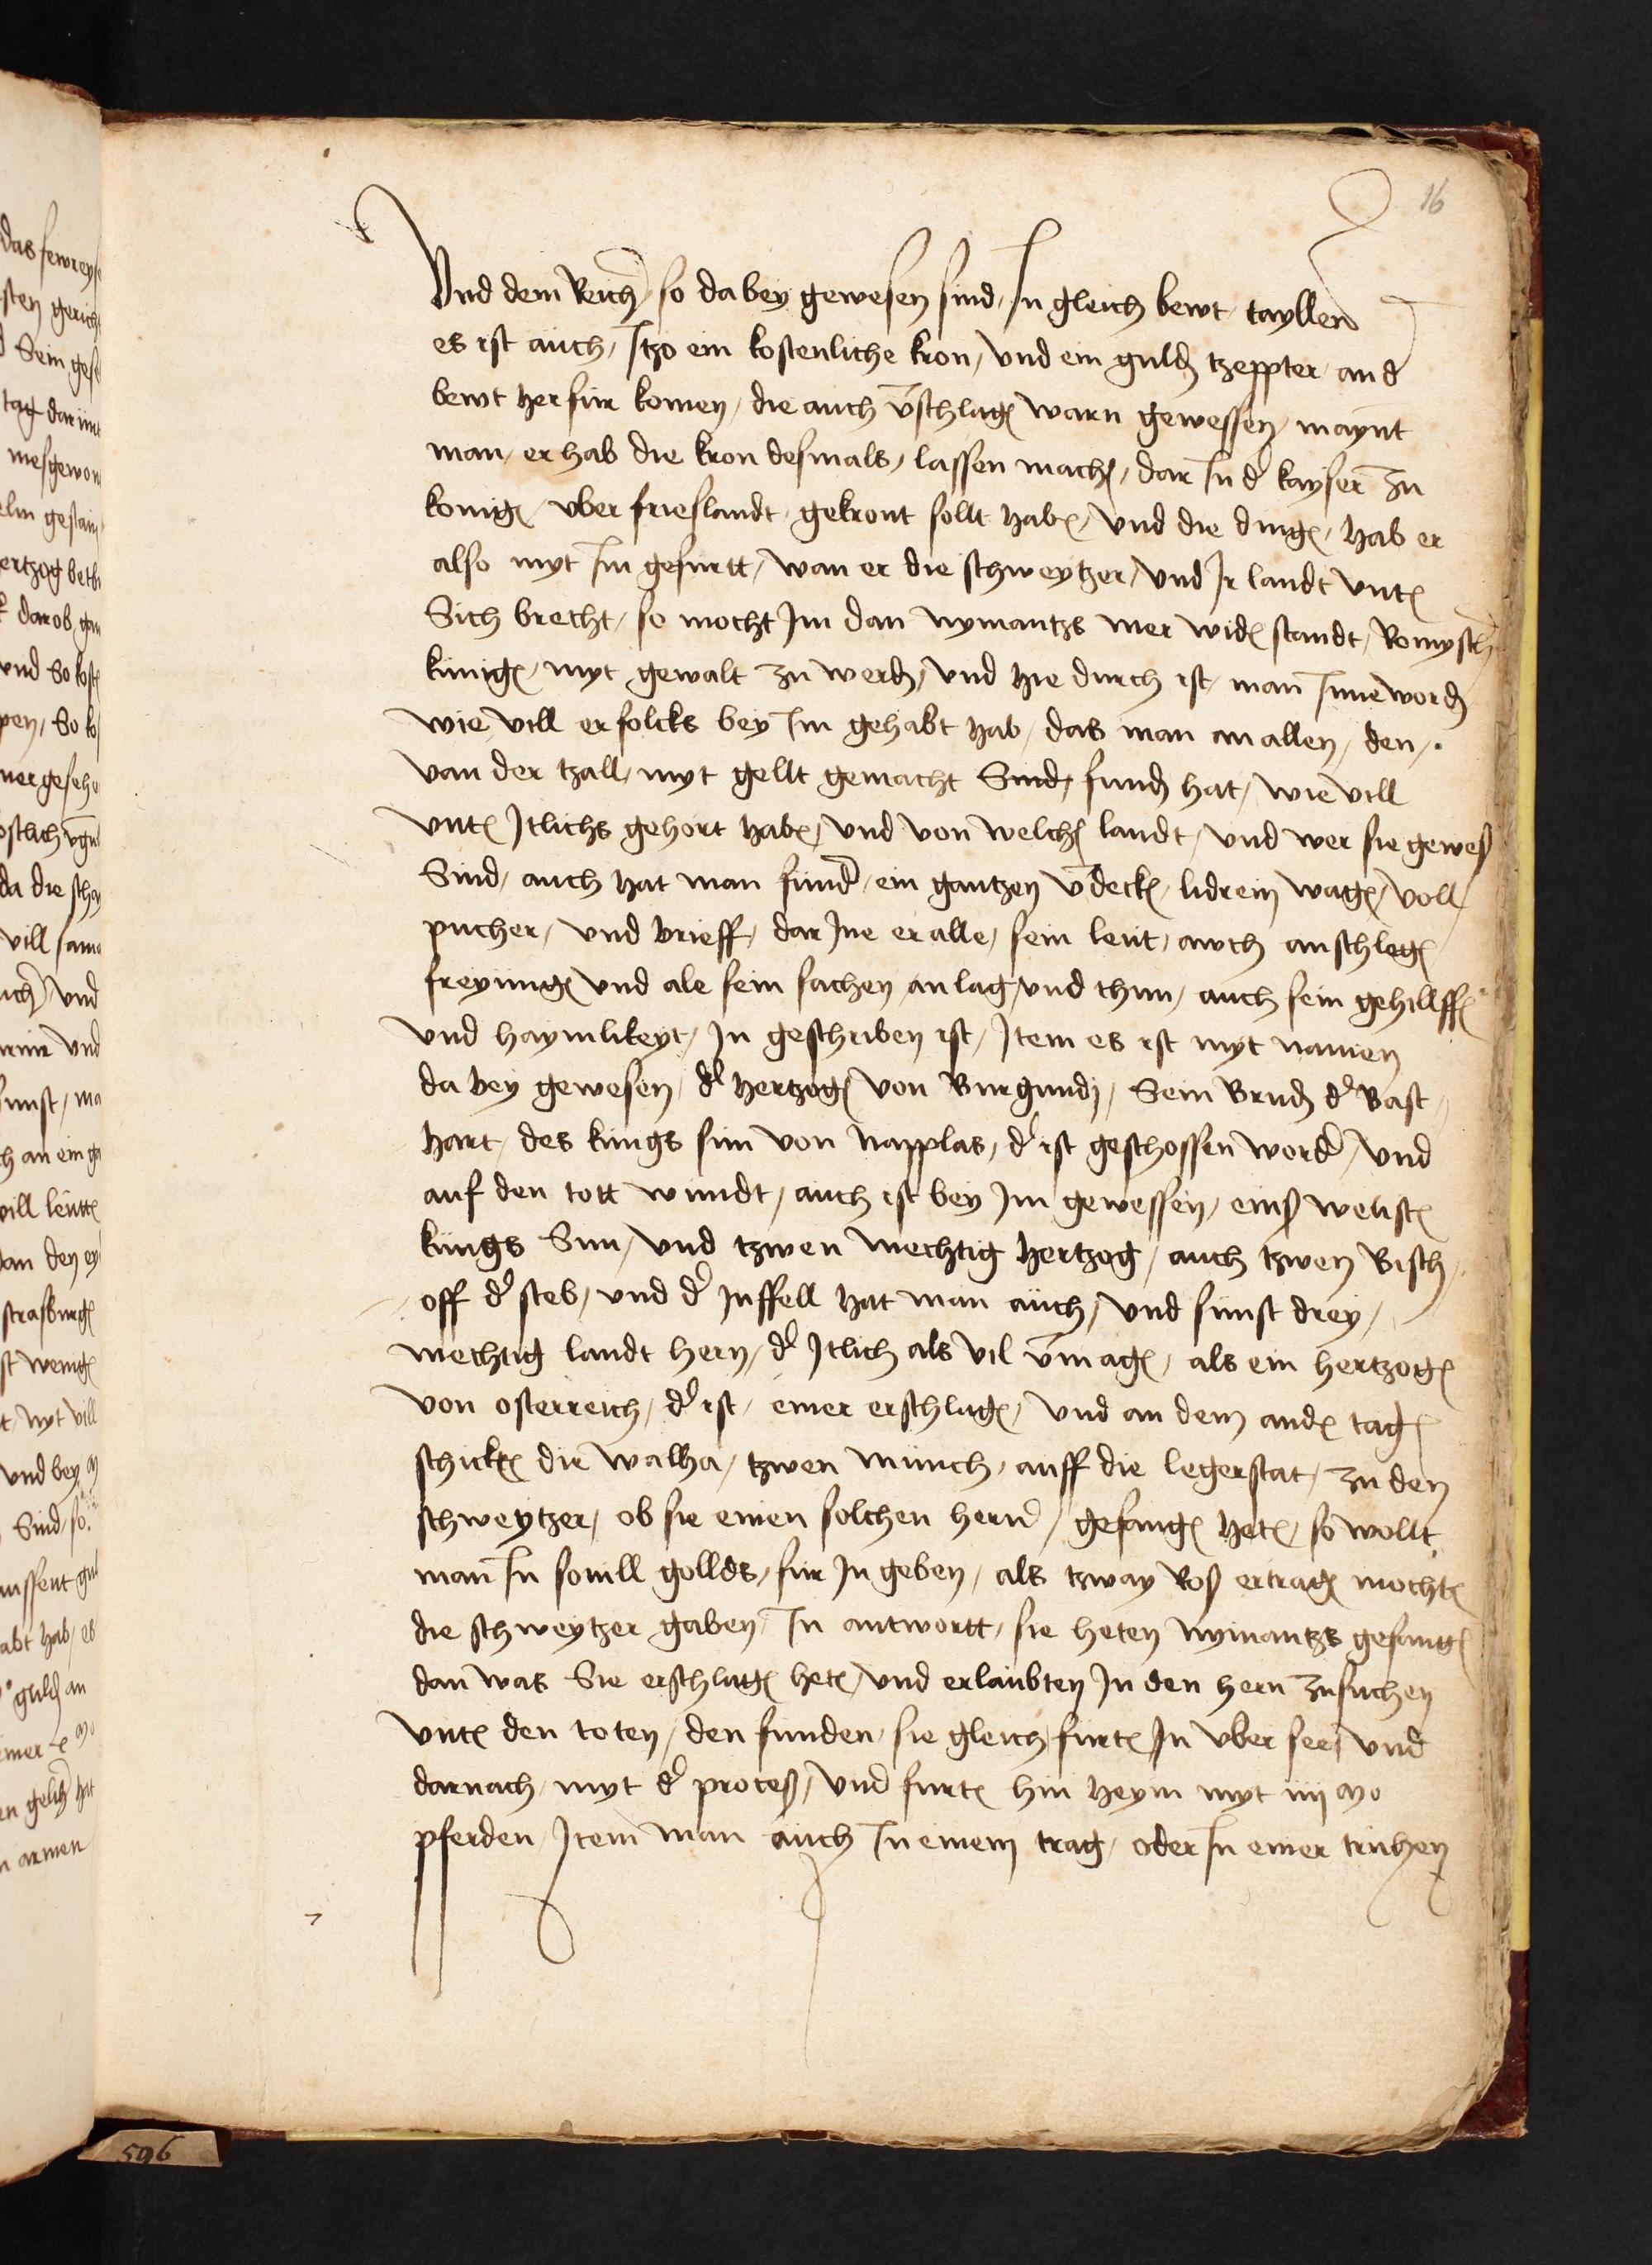 16
Vnd dem Reich so da bey gewesen sind / In gleich bewt tayllen
es ist auch / Itzo ein kostenliche kron / vnd ein guld tzeppter an d
bewt herfur komen / die auch vschlagen warn gewessen / maynt
man / er hab die kron desmals / lassen mach / dar In d kayser zu
konig vber frieslandt gekront sollt hab / vnd die ding / hab er
also myt Im gefurtt / wan er die schweytzer / vnd Ir landt vnt
Sich brecht / so mocht Im dan nymantzs mer wid standt / Romysch
kunig / myt gewalt zu werd / vnd hie durch ist / man Inne word
wie vill er folcks bey Im gehabt hab / das man an allen / den /
van der tzall / myt gellt gemacht Sind / fund hat / wie vill
vnt Itlichs gehort hab / vnd von welch landt / vnd wer sie gewes
Sind / auch hat man fund / ein gantzen vdeck lidrein wag / voll
pucher / vnd brieff / dar Ine er alle / sein leut / auch anschleg
freyung vnd ale sein sachen an lag / vnd thun / auch sein gehillff
vnd haymlikeyt / In geschriben ist / Item es ist myt namen
da bey gewesen / d hertzog von Burgundj / Sein Brud d Bast
hart / des kungs sun von Napplas / d ist geschossen word / vnd
auf den tott wundt / auch ist bey Im gewessen / eins welisch
kungs Sun / vnd tzwen mechtig hertzog / auch tzwen Bisch
off d steb / vnd d Inffell hat man auch / vnd sunst drey /
mechtig landt hern / d Itlich als vil vmag / als ein hertzog
von osterreich / d ist / einer erschlag / vnd an dem and tag
schickt die walha / tzwen munch / auff die legerstat / zu den
schweytzer / ob sie einen solchen hern / gefang het / so wollt
man In souill gollds / fur In geben / als tzway Ros ertrag mocht
die schweytzer gaben In antwortt / sie heten nymantzs gefang
dan was Sie erschlag het / vnd erlaubten In den hern zusuchen
vnt den toten / den funden sie gleich / furt In vber see / vnd
darnach / myt d proces / vnd furt hin heym myt iiij
pferden / Item man auch In einem trag / oder In einer truhen
596